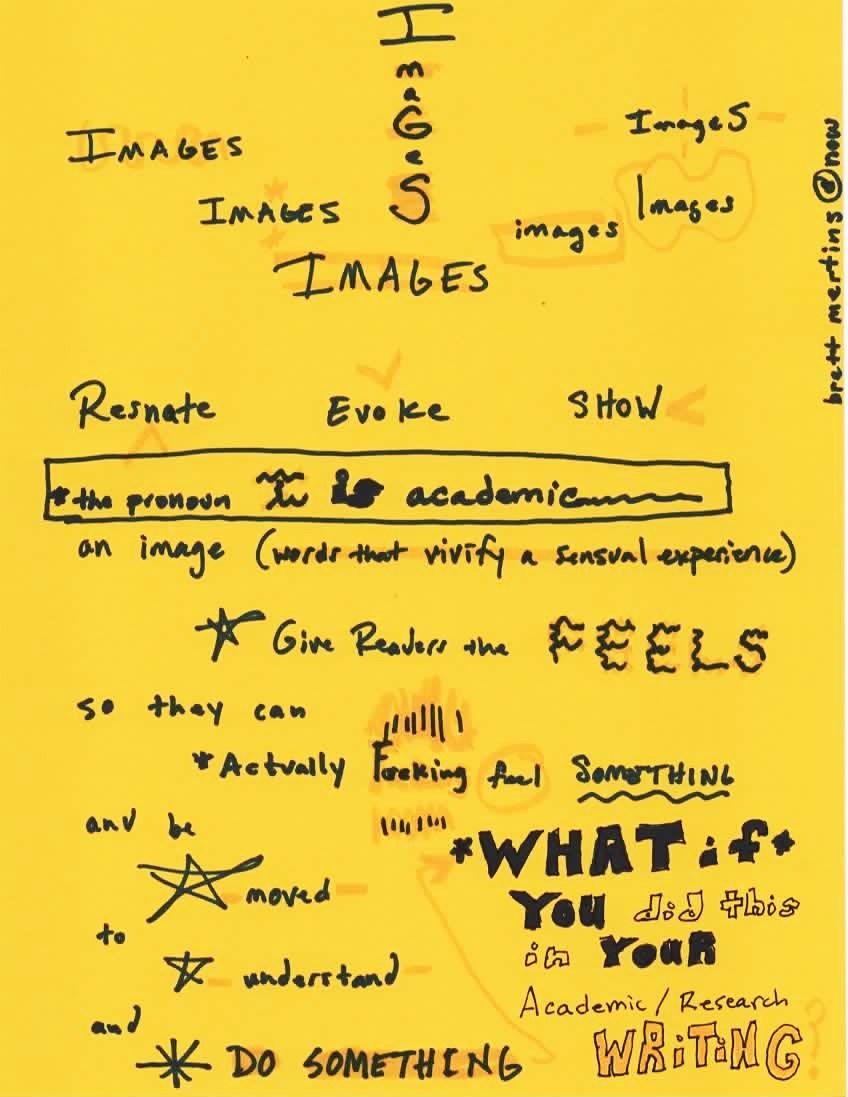 ImaGeS
IMAGES
ImageS
IMAGES
Images
images
IMAGES
brett mertins @ now
Resnate Evoke SHOW
*the pronoun I is academic
an image (words that vivify a sensual experience)
Give Readers the FEELS
so they can
*Actually Fucking feel SOMETHING
and be
moved
to
understand
and
DO SOMETHING
*WHAT if*
You did this
in YouR
Academic / Research
WRiTiNG?